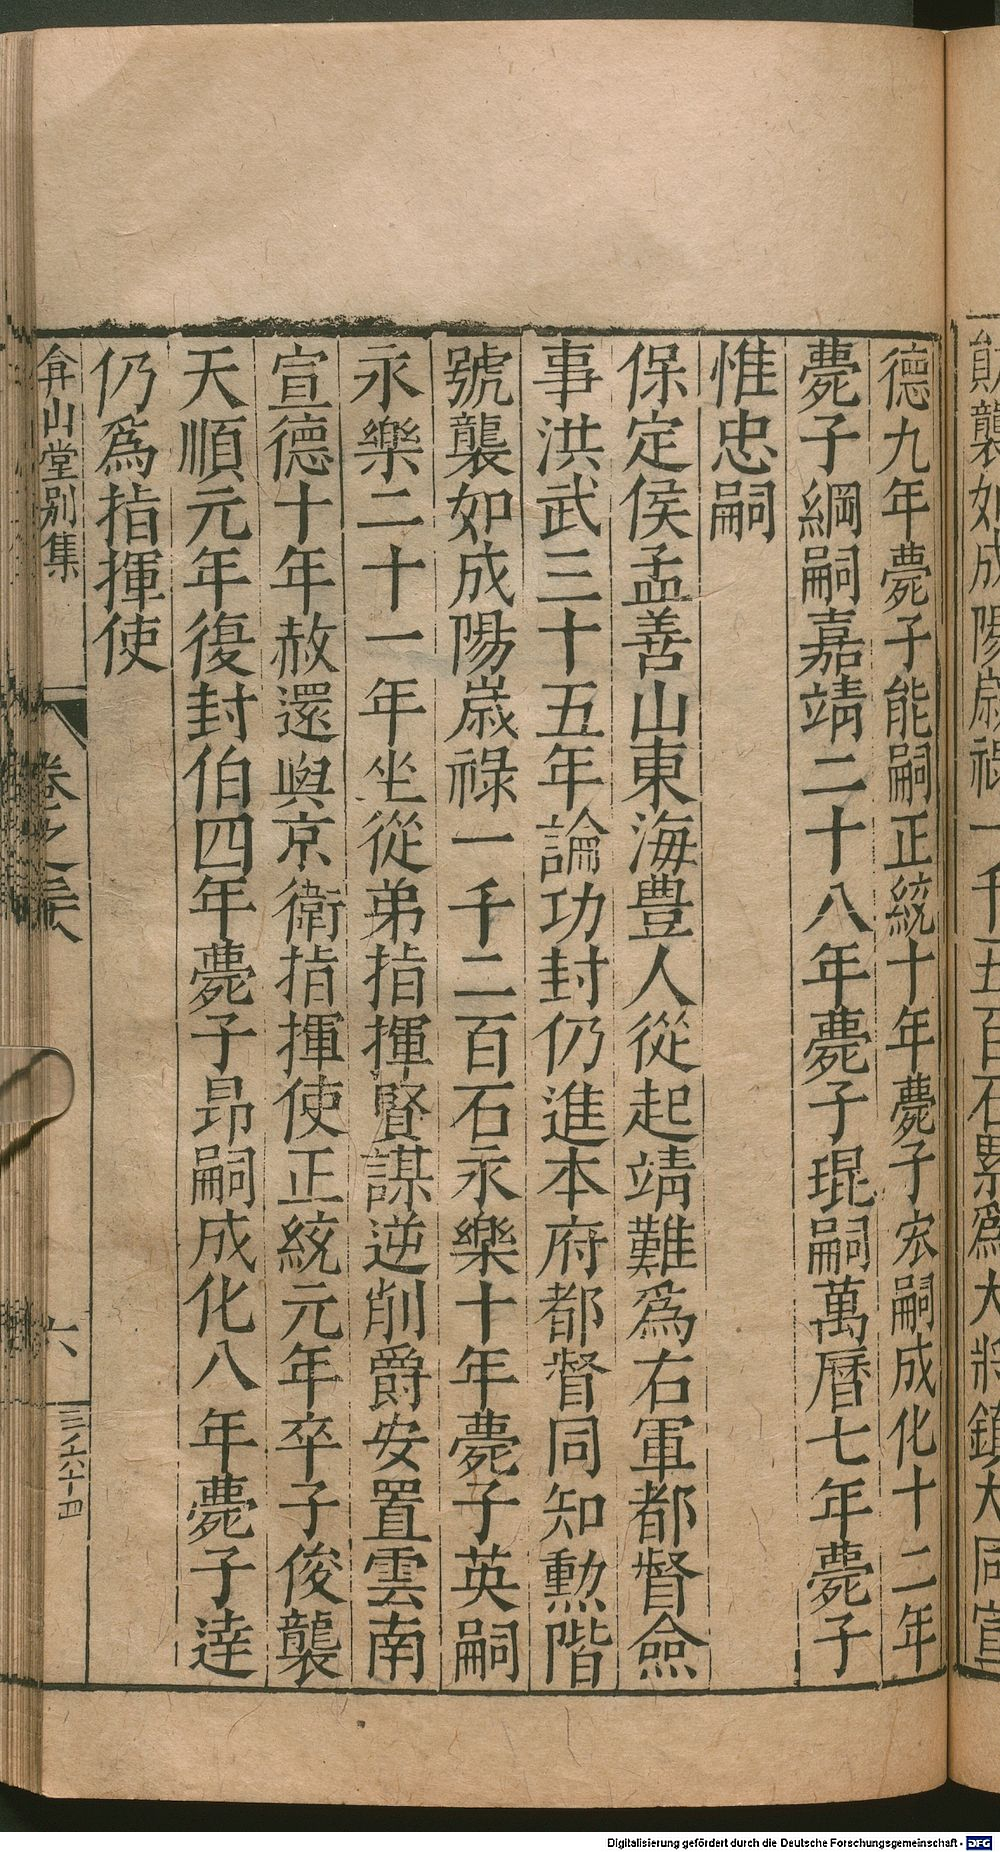 貺襲如成陽歲祿一千五百石累爲大將鎮大同宣
德九年薨子能嗣正統十年薨子宏嗣成化十二年
薨子綱嗣嘉靖二十八年薨子琨嗣萬曆七年薨子
惟忠嗣
保定侯孟善山東海豊人從起靖難爲右軍都督僉
事洪武三十五年論功封仍進本府都督同知勲階
號襲如成陽嵗祿一千二百石永樂十年薨子英嗣
永樂二十一年坐從弟指揮賢謀逆削爵安置雲南
宣德十年赦還與京衛指揮使正統元年卒子俊襲
天順元年復封伯四年薨子昂嗣成化八年薨子達
仍爲指揮使
弇山堂別集
卷之三八
六
Digitalisierung gefördert durch die Deutsche Forschungsgemeinschaft - DFG